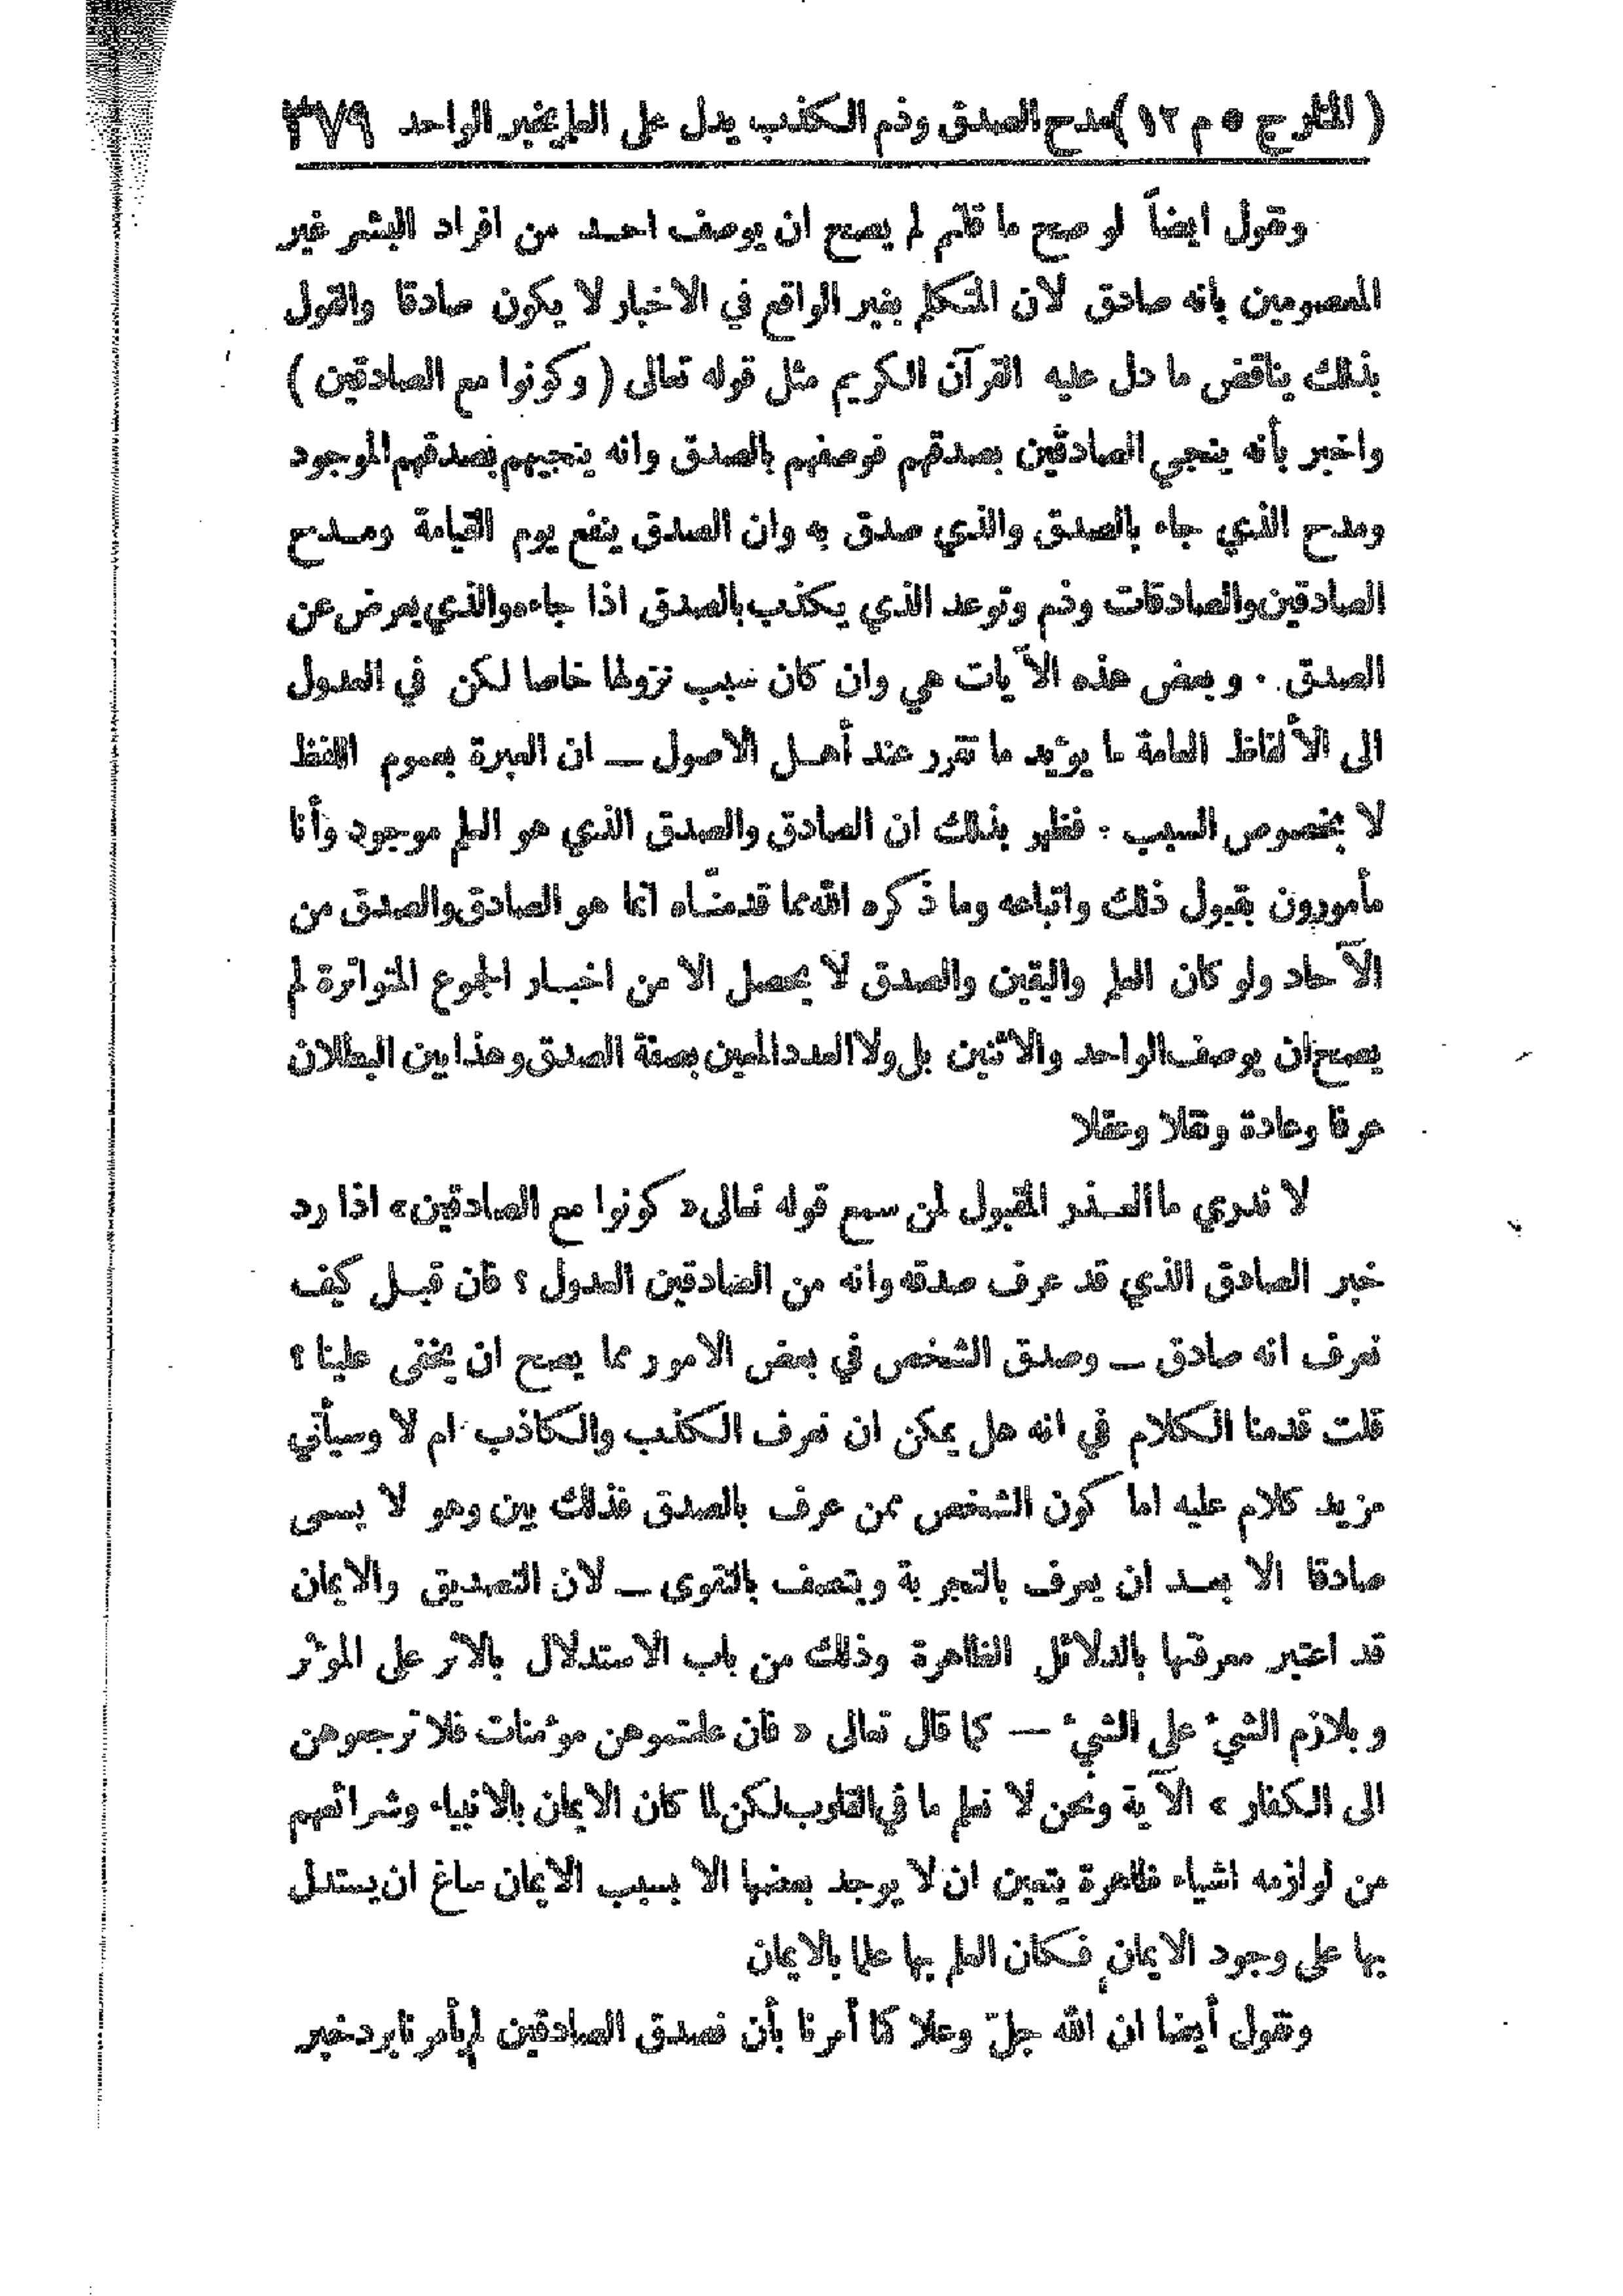 ( المنار ج ٥ م ١٢ ) مدح الصدق وذم الكذب يدل على العلم بخبر الواحد ٣٧٩
ونقول ايضاً لو صح ما قلتم لم يصح ان يوصف احد من افراد البشر غير
المعصومين بانه صادق لان المتكلم بغير الواقع في الاخبار لا يكون صادقا والقول
بذلك يناقض ما دل عليه القرآن الكريم مثل قوله تعالى ( وكونوا مع الصادقين )
واخبر بأنه ينجي الصادقين بصدقهم فوصفهم بالصدق وانه ينجيهم بصدقهم الموجود
ومدح الذي جاء بالصدق والذي صدق به وان الصدق ينفع يوم القيامة ومدح
الصادقين والصادقات وذم وتوعد الذي يكذب بالصدق اذا جاءه والذي يعرض عن
الصدق . وبعض هذه الآيات هي وان كان سبب نزولها خاصا لكن في العدول
الى الألفاظ العامة ما يؤيد ما تقرر عند أهل الاصول — ان العبرة بعموم اللفظ
لا بخصوص السبب . فظهر بذلك ان الصادق والصدق الذي هو العلم موجود وأنا
مأمورون بقبول ذلك واتباعه وما ذكره الله مما قدمناه انما هو الصادق والصدق من
الآحاد ولو كان العلم واليقين والصدق لا يحصل الا من اخبار الجموع المتواترة لم
يصح ان يوصف الواحد والاثنين بل ولا العدد المعين بصفة الصدق وهذا بين البطلان
عرفا وعادة ونقلا وعقلا
لا ندري ما العذر المقبول لمن سمع قوله تعالى « كونوا مع الصادقين » اذا رد
خبر الصادق الذي قد عرف صدقه وانه من الصادقين العدول ؟ فان قيل كيف
نعرف انه صادق — وصدق الشخص في بعض الامور مما يصح ان يخفى علينا ؟
قلت قدمنا الكلام في انه هل يمكن ان نعرف الكذب والكاذب ام لا وسيأتي
مزيد كلام عليه اما كون الشخص ممن عرف بالصدق فذلك بين وهو لا يسمى
صادقا الا بعد ان يعرف بالتجربة ويتصف بالتقوى — لان التصديق والايمان
قد اعتبر معرفتها بالدلائل الظاهرة وذلك من باب الاستدلال بالاثر على المؤثر
وبلازم الشيء على الشيء — كما قال تعالى « فان علمتموهن مؤمنات فلا ترجعوهن
الى الكفار » الآية ونحن لا نعلم ما في القلوب لكن لما كان الايمان بالانبياء وشرائعهم
من لوازمه اشياء ظاهرة يتعين ان لا يوجد بعضها الا بسبب الايمان ساغ ان يستدل
بها على وجود الايمان فكان العلم بها علما بالايمان
ونقول أيضا ان الله جلّ وعلا كما أمرنا بأن نصدق الصادقين لم يأمرنا برد خبر